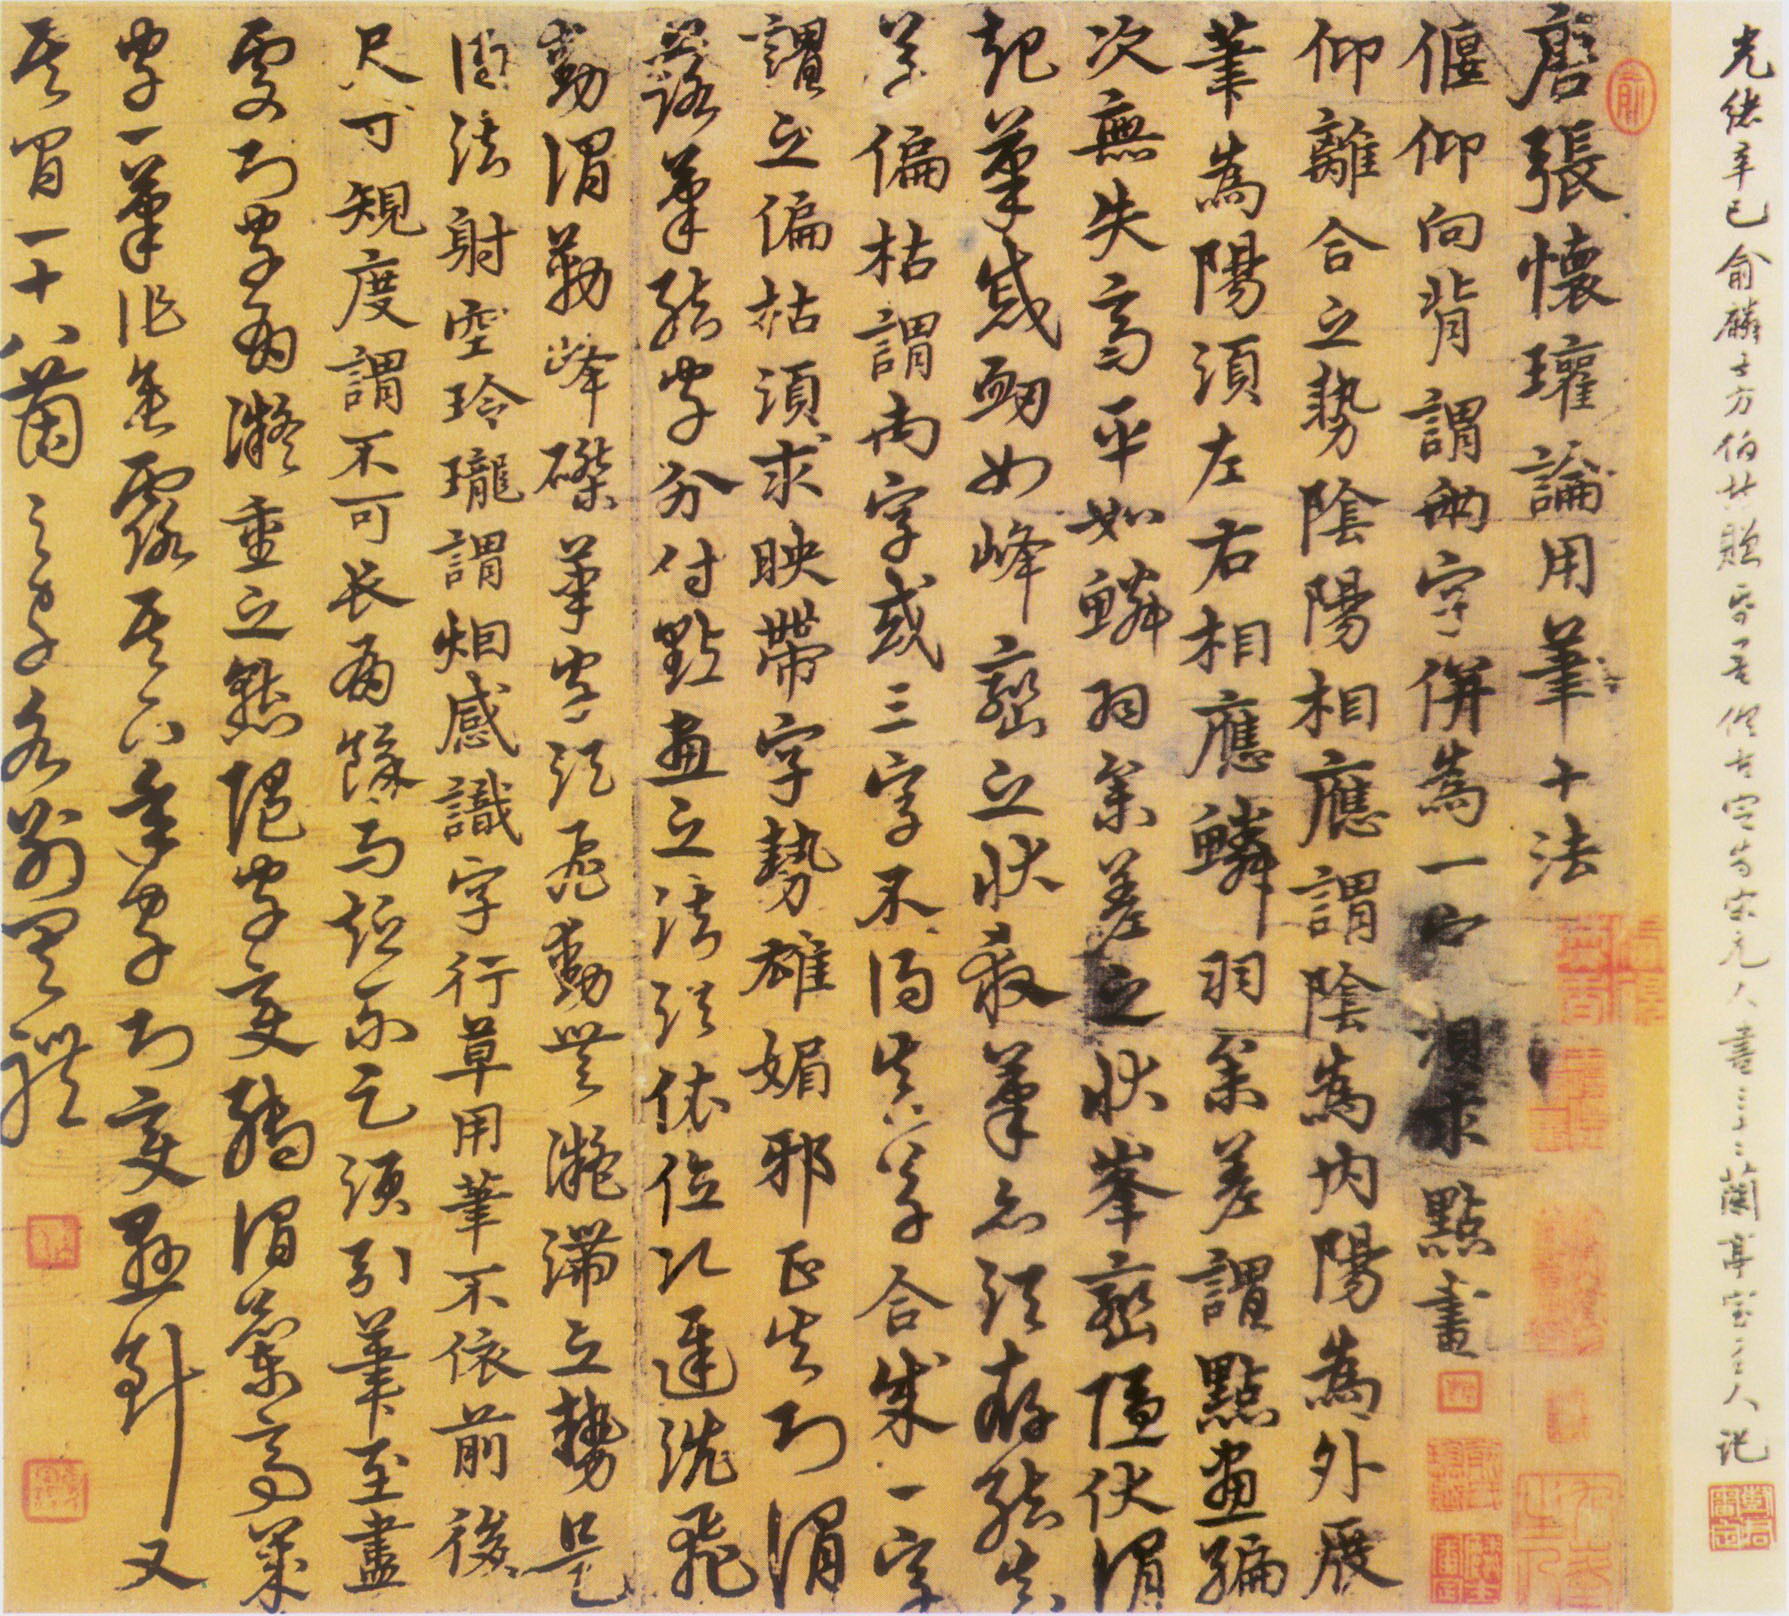 光緒辛巳俞麟士方伯持贈帝吾傾古宦蒡宋元人書蘭亭室主人記
唐張懷瓘論用筆十法
偃仰向背謂兩字併為一字須求點畫
仰離合之勢陰陽相應謂陰為內陽為外展
筆為陽須左右相應鱗羽參差謂點畫編
次無失高平如鱗羽參差之狀峯巒隱伏謂
起筆蹙衂如峰巒之狀殺筆亦須存結真
草偏枯謂兩字或三字不得真草合成一字
謂之偏枯須求映帶字勢雄媚邪正失則謂
落筆結字分付點畫之法須依位次遲洗飛
動謂勒峰磔筆字須飛動無凝滯之勢是
得法射空玲瓏謂烟感識字行草用筆不依前後
尺寸規度謂不可長有餘而短不足須引筆至盡
處則字有凝重之態隨字變轉謂蘭亭
字一筆作垂露其下年字則變懸針又
其間一十八箇之字各別有體